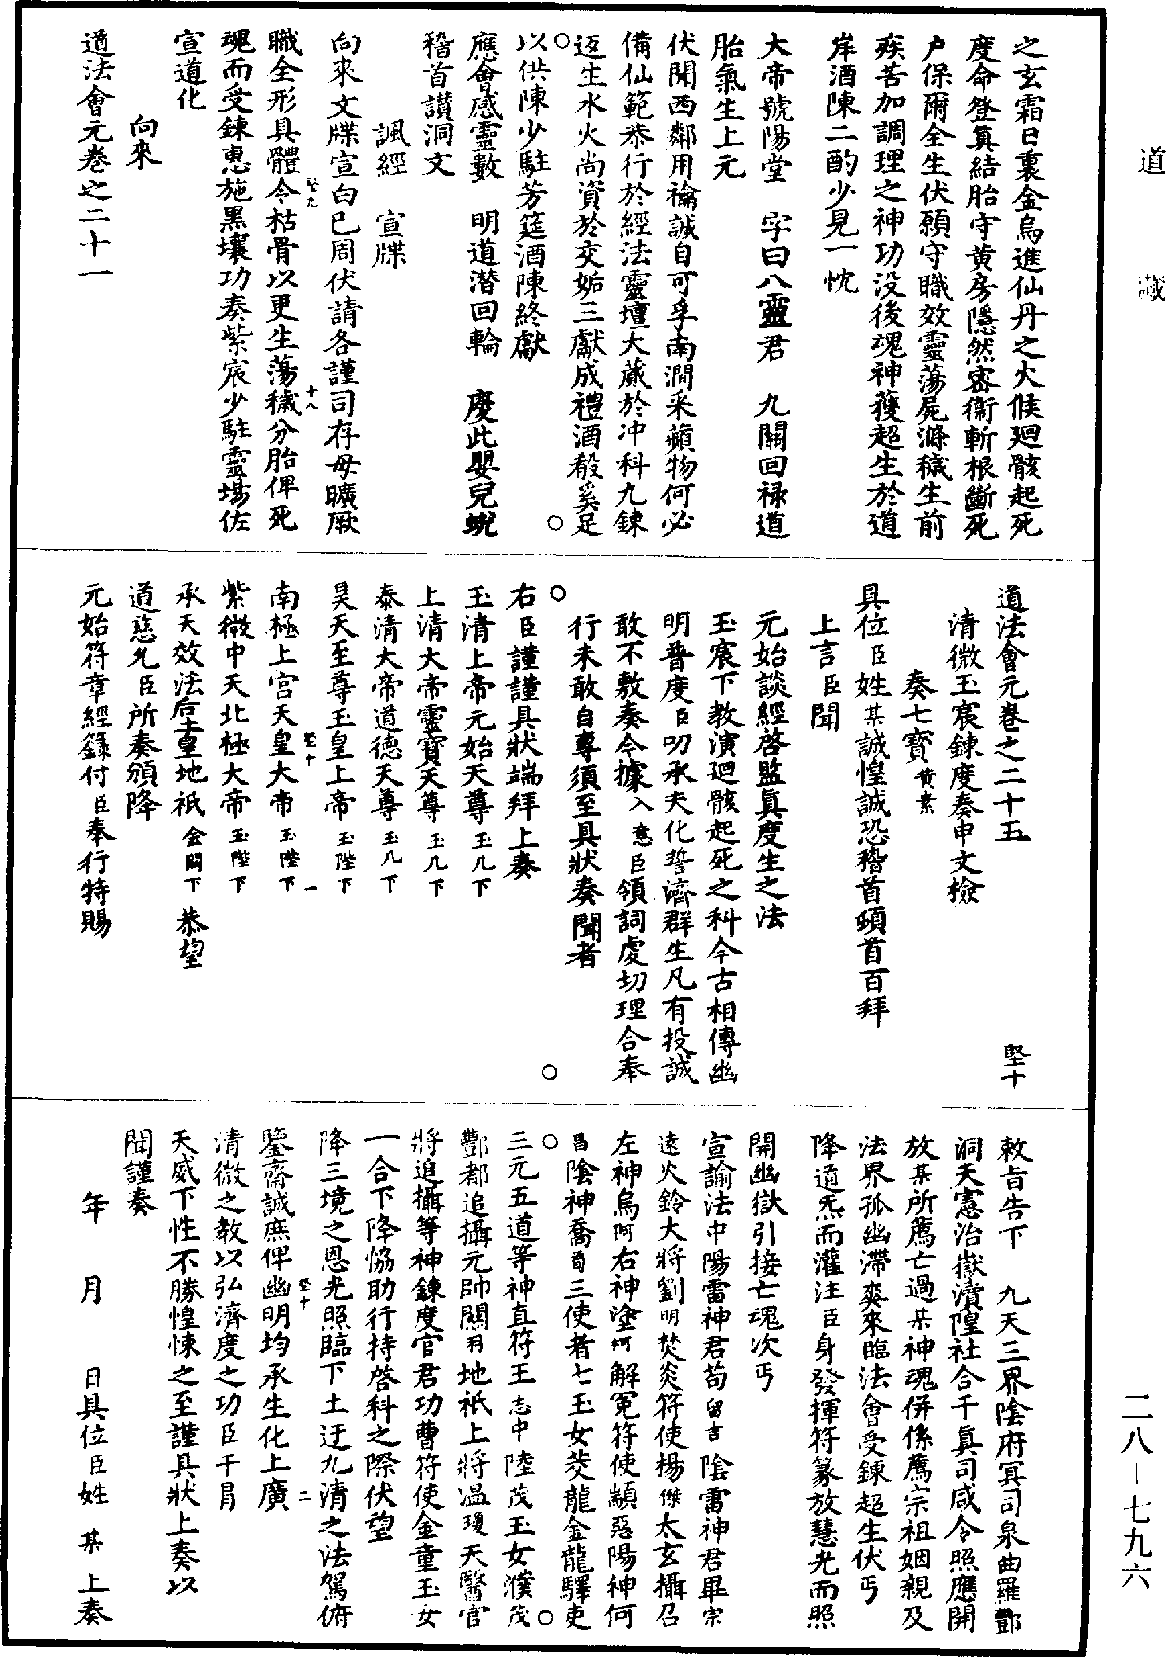 道藏
之玄霜日裏金烏進仙丹之火候廻骸起死
度命登真結胎守黄房隱然密衛斬根斷死
户保爾全生伏願守職效靈蕩屍滌穢生前
疾苦加調理之神功没後魂神獲超生於道
岸酒陳二酌少見一忱
大帝號陽堂　字曰八靈君　九關回禄道
胎氣生上元
伏聞西鄰用禴誠自可孚南澗采蘋物何必
備仙範恭行於經法靈壇大蕆於冲科九鍊
返生水火尚資於交姤三獻成禮酒殽奚足
以供陳少駐芳筵酒陳終獻
應會感靈數　明道潛回輪　慶此嬰兒蛻
稽首讃洞文
諷經　宣牒
向來文牒宣白已周伏請各謹司存毋曠厥
職全形具體令枯骨以更生蕩穢分胎俾死
魂而受鍊惠施黑壤功奏紫宸少駐靈場佐
宣道化
向來
道法會元卷之二十一
道法會元卷之二十五　堅十
清微玉宸鍊度奏申文檢
奏七寶黄素
具位臣姓某誠惶誠恐稽首頓首百拜
上言臣聞
元始談經啓監真度生之法
玉宸下教演廻骸起死之科今古相傳幽
明普度臣叨承天化誓濟群生凡有投誠
敢不敷奏今據入意臣領詞虔切理合奉
行未敢自專須至具狀奏聞者
右臣謹謹具狀端拜上奏
玉清上帝元始天尊玉几下
上清大帝靈寶天尊玉几下
泰清大帝道德天尊玉几下
昊天至尊玉皇上帝玉陛下
南極上宮天皇大帝玉陛下
紫微中天北極大帝玉陛下
承天效法后土皇地祇金闕下　恭望
道慈允臣所奏頒降
元始符章經籙付臣奉行特賜
敕旨告下　九天三界陰府冥司泉曲羅酆
洞天憲治嶽瀆隍社合干真司咸令照應開
放某所薦亡過某神魂併係薦宗祖姻親及
法界孤幽滯爽來臨法會受鍊超生伏丐
降道炁而灌注臣身發揮符篆放慧光而照
開幽獄引接亡魂次丐
宣諭法中陽雷神君苟留吉陰雷神君畢宗
遠火鈴大將劉明焚炎符使楊傑太玄攝召
左神烏阿右神塗阿解冤符使顓惡陽神何
昌陰神喬苟三使者七玉女茭龍金龍驛吏
三元五道等神直符王志中陸茂玉女濮茂
酆都追攝元帥關羽地祇上將温瓊天醫官
將追攝等神鍊度官君功曹符使金童玉女
一合下降恊助行持啓科之際伏望
降三境之恩光照臨下土迂九清之法駕俯
鑒齋誠庶俾幽明均承生化上廣
清微之教以弘濟度之功臣干冒
天威下性不勝惶悚之至謹具狀上奏以
聞謹奏
年　月　日具位臣姓　某　上奏
二八—七九六